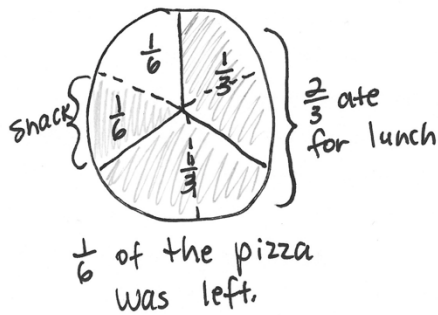 1/6
1/3
1/6
1/3
Snack
2/3 ate
for lunch
1/6 of the pizza
was left.